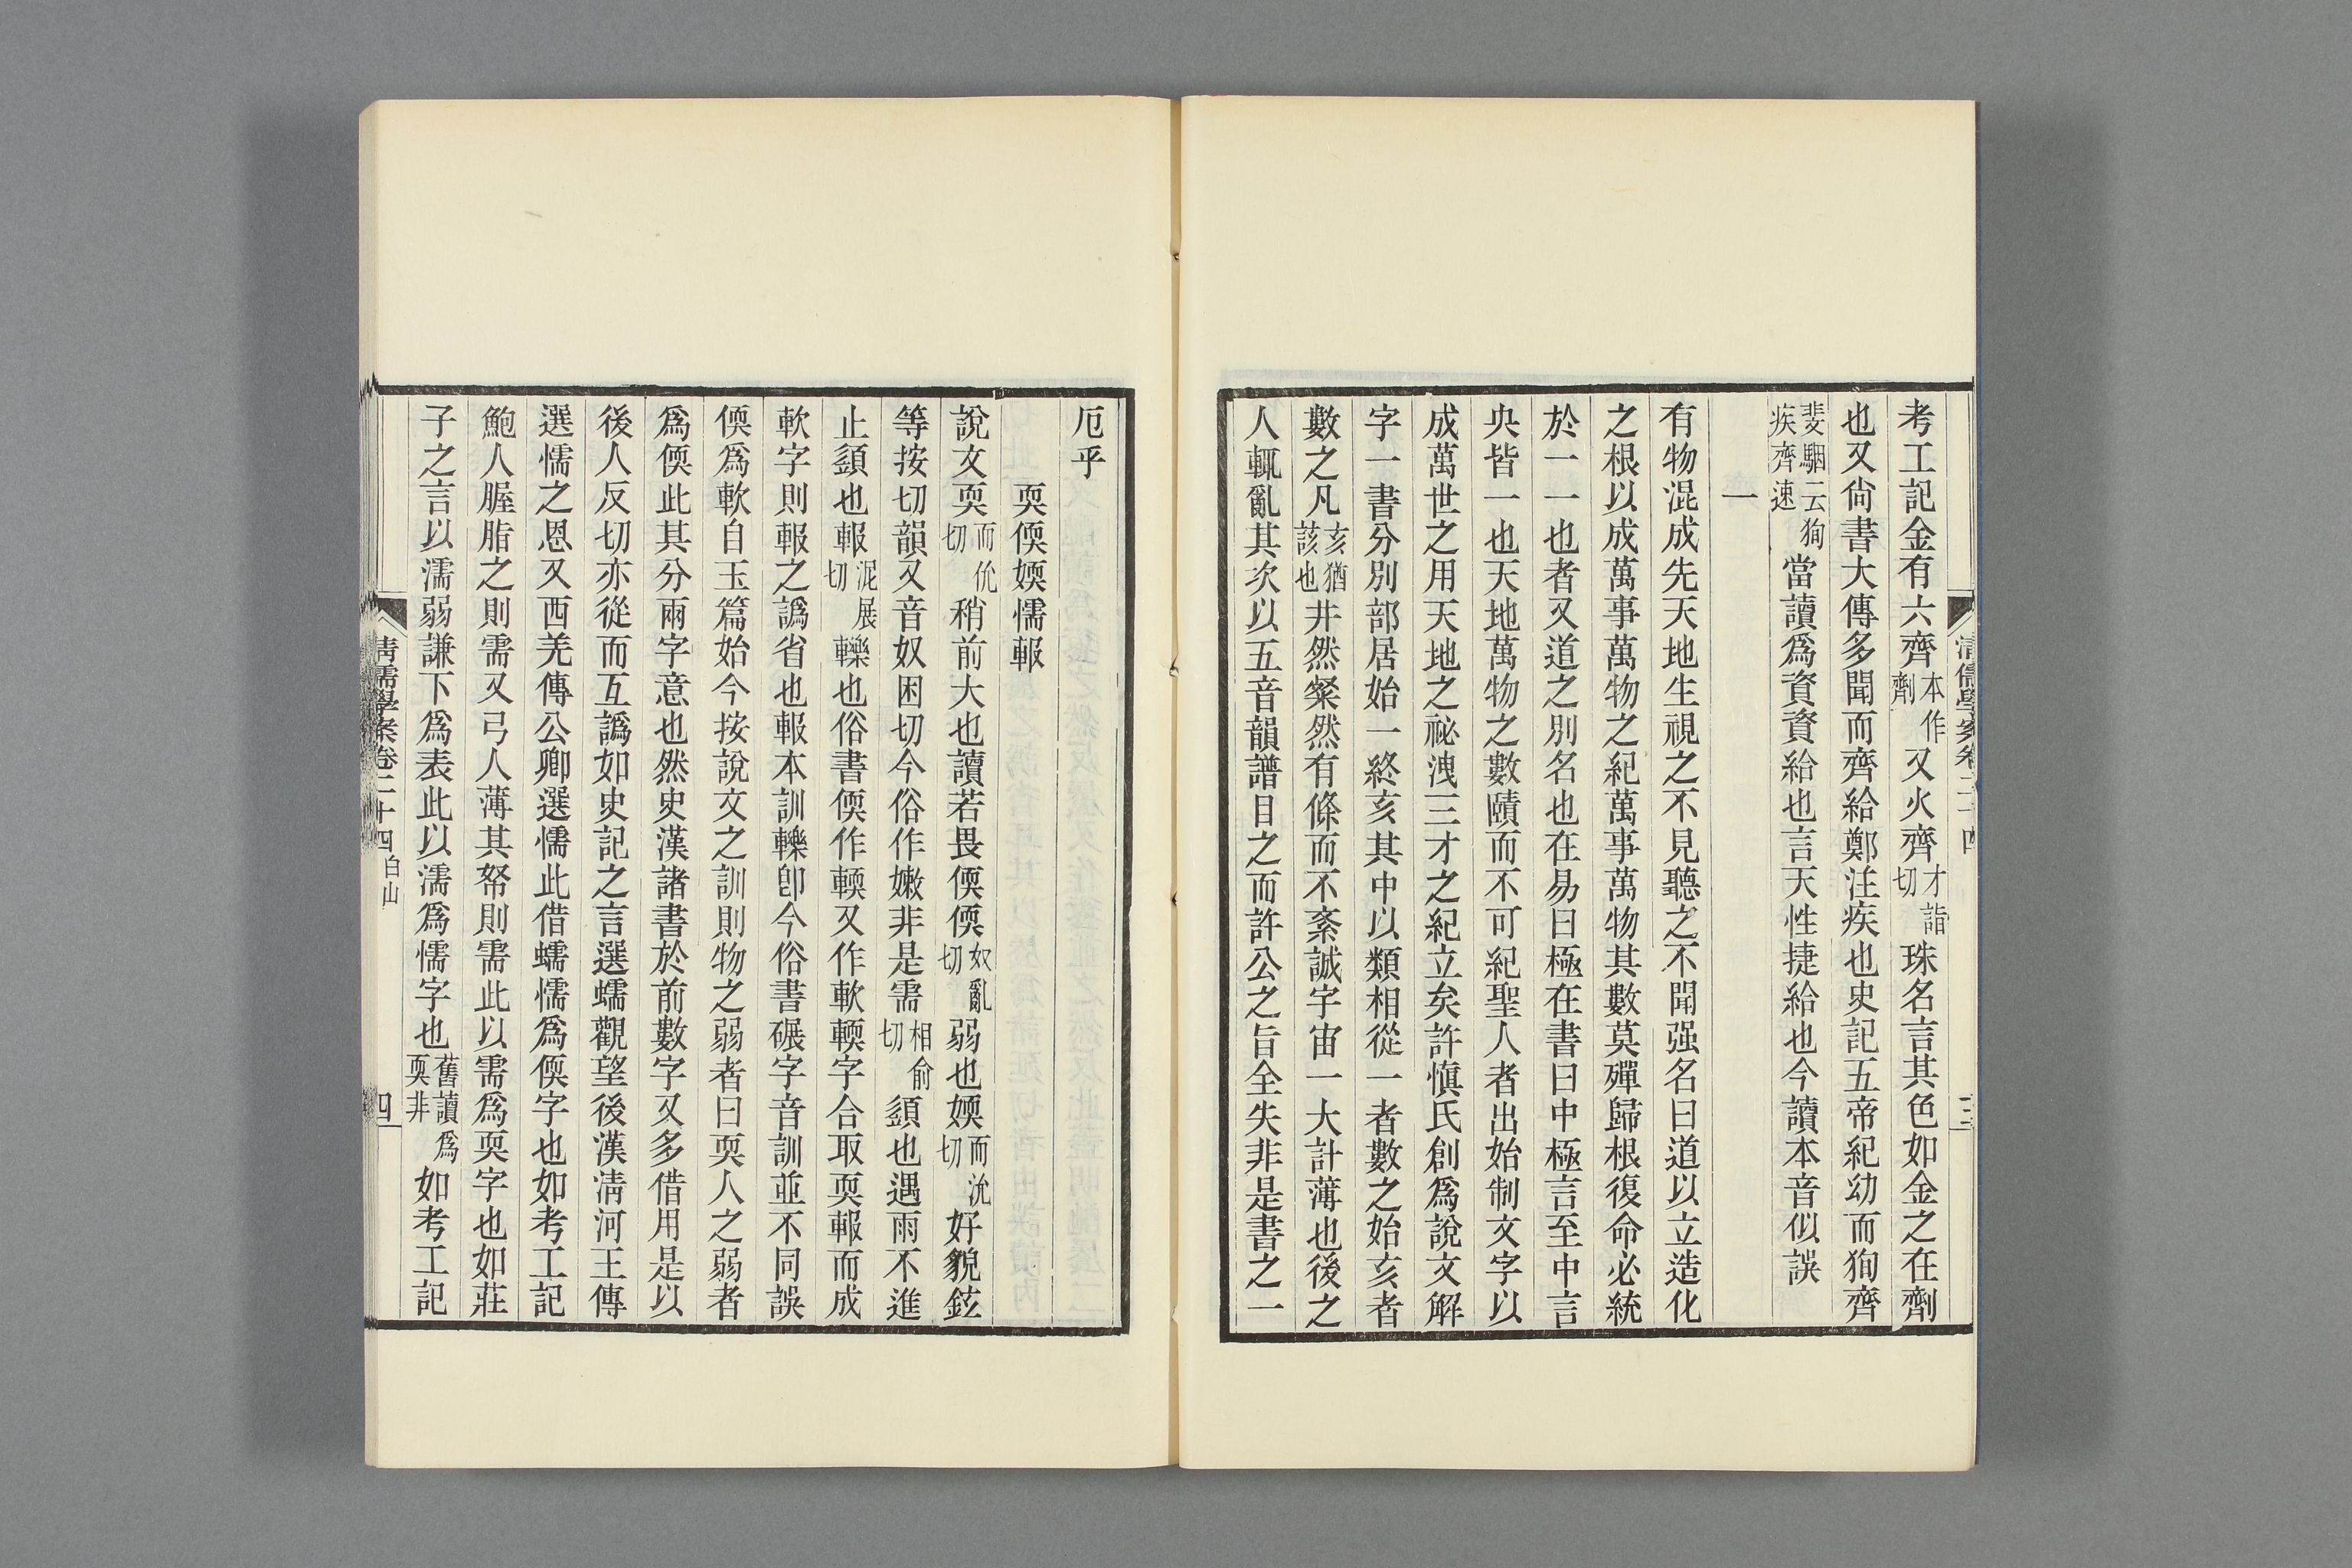 清儒學案卷二十四
三
考工記金有六齊本作劑又火齊才詣切珠名言其色如金之在劑
也又尙書大傳多聞而齊給鄭注疾也史記五帝紀幼而狥齊
斐駰云狥疾齊速當讀爲資資給也言天性捷給也今讀本音似誤
一
有物混成先天地生視之不見聽之不聞强名曰道以立造化
之根以成萬事萬物之紀萬事萬物其數莫殫歸根復命必統
於一一也者又道之別名也在易曰極在書曰中極言至中言
央皆一也天地萬物之數賾而不可紀聖人者出始制文字以
成萬世之用天地之祕洩三才之紀立矣許愼氏創爲說文解
字一書分別部居始一終亥其中以類相從一者數之始亥者
數之凡亥猶該也井然粲然有條而不紊誠宇宙一大計薄也後之
人輒亂其次以五音韻譜目之而許公之旨全失非是書之一
厄乎
耎偄媆懦報
說文耎而伿切稍前大也讀若畏偄偄奴亂切弱也媆而沇切好貌鉉
等按切韻又音奴困切今俗作嫩非是需相俞切䇓也遇雨不進
止䇓也報泥展切轢也俗書偄作輭又作軟輭字合取耎報而成
軟字則報之譌省也報本訓轢卽今俗書碾字音訓並不同誤
偄爲軟自玉篇始今按說文之訓則物之弱者曰耎人之弱者
爲偄此其分兩字意也然史漢諸書於前數字又多借用是以
後人反切亦從而互譌如史記之言選蠕觀望後漢淸河王傳
選懦之恩又西羌傳公卿選懦此借蠕懦爲偄字也如考工記
鮑人腛脂之則需又弓人薄其帤則需此以需爲耎字也如莊
子之言以濡弱謙下爲表此以濡爲懦字也舊讀爲耎非如考工記
清儒學案卷二十四 白山
四